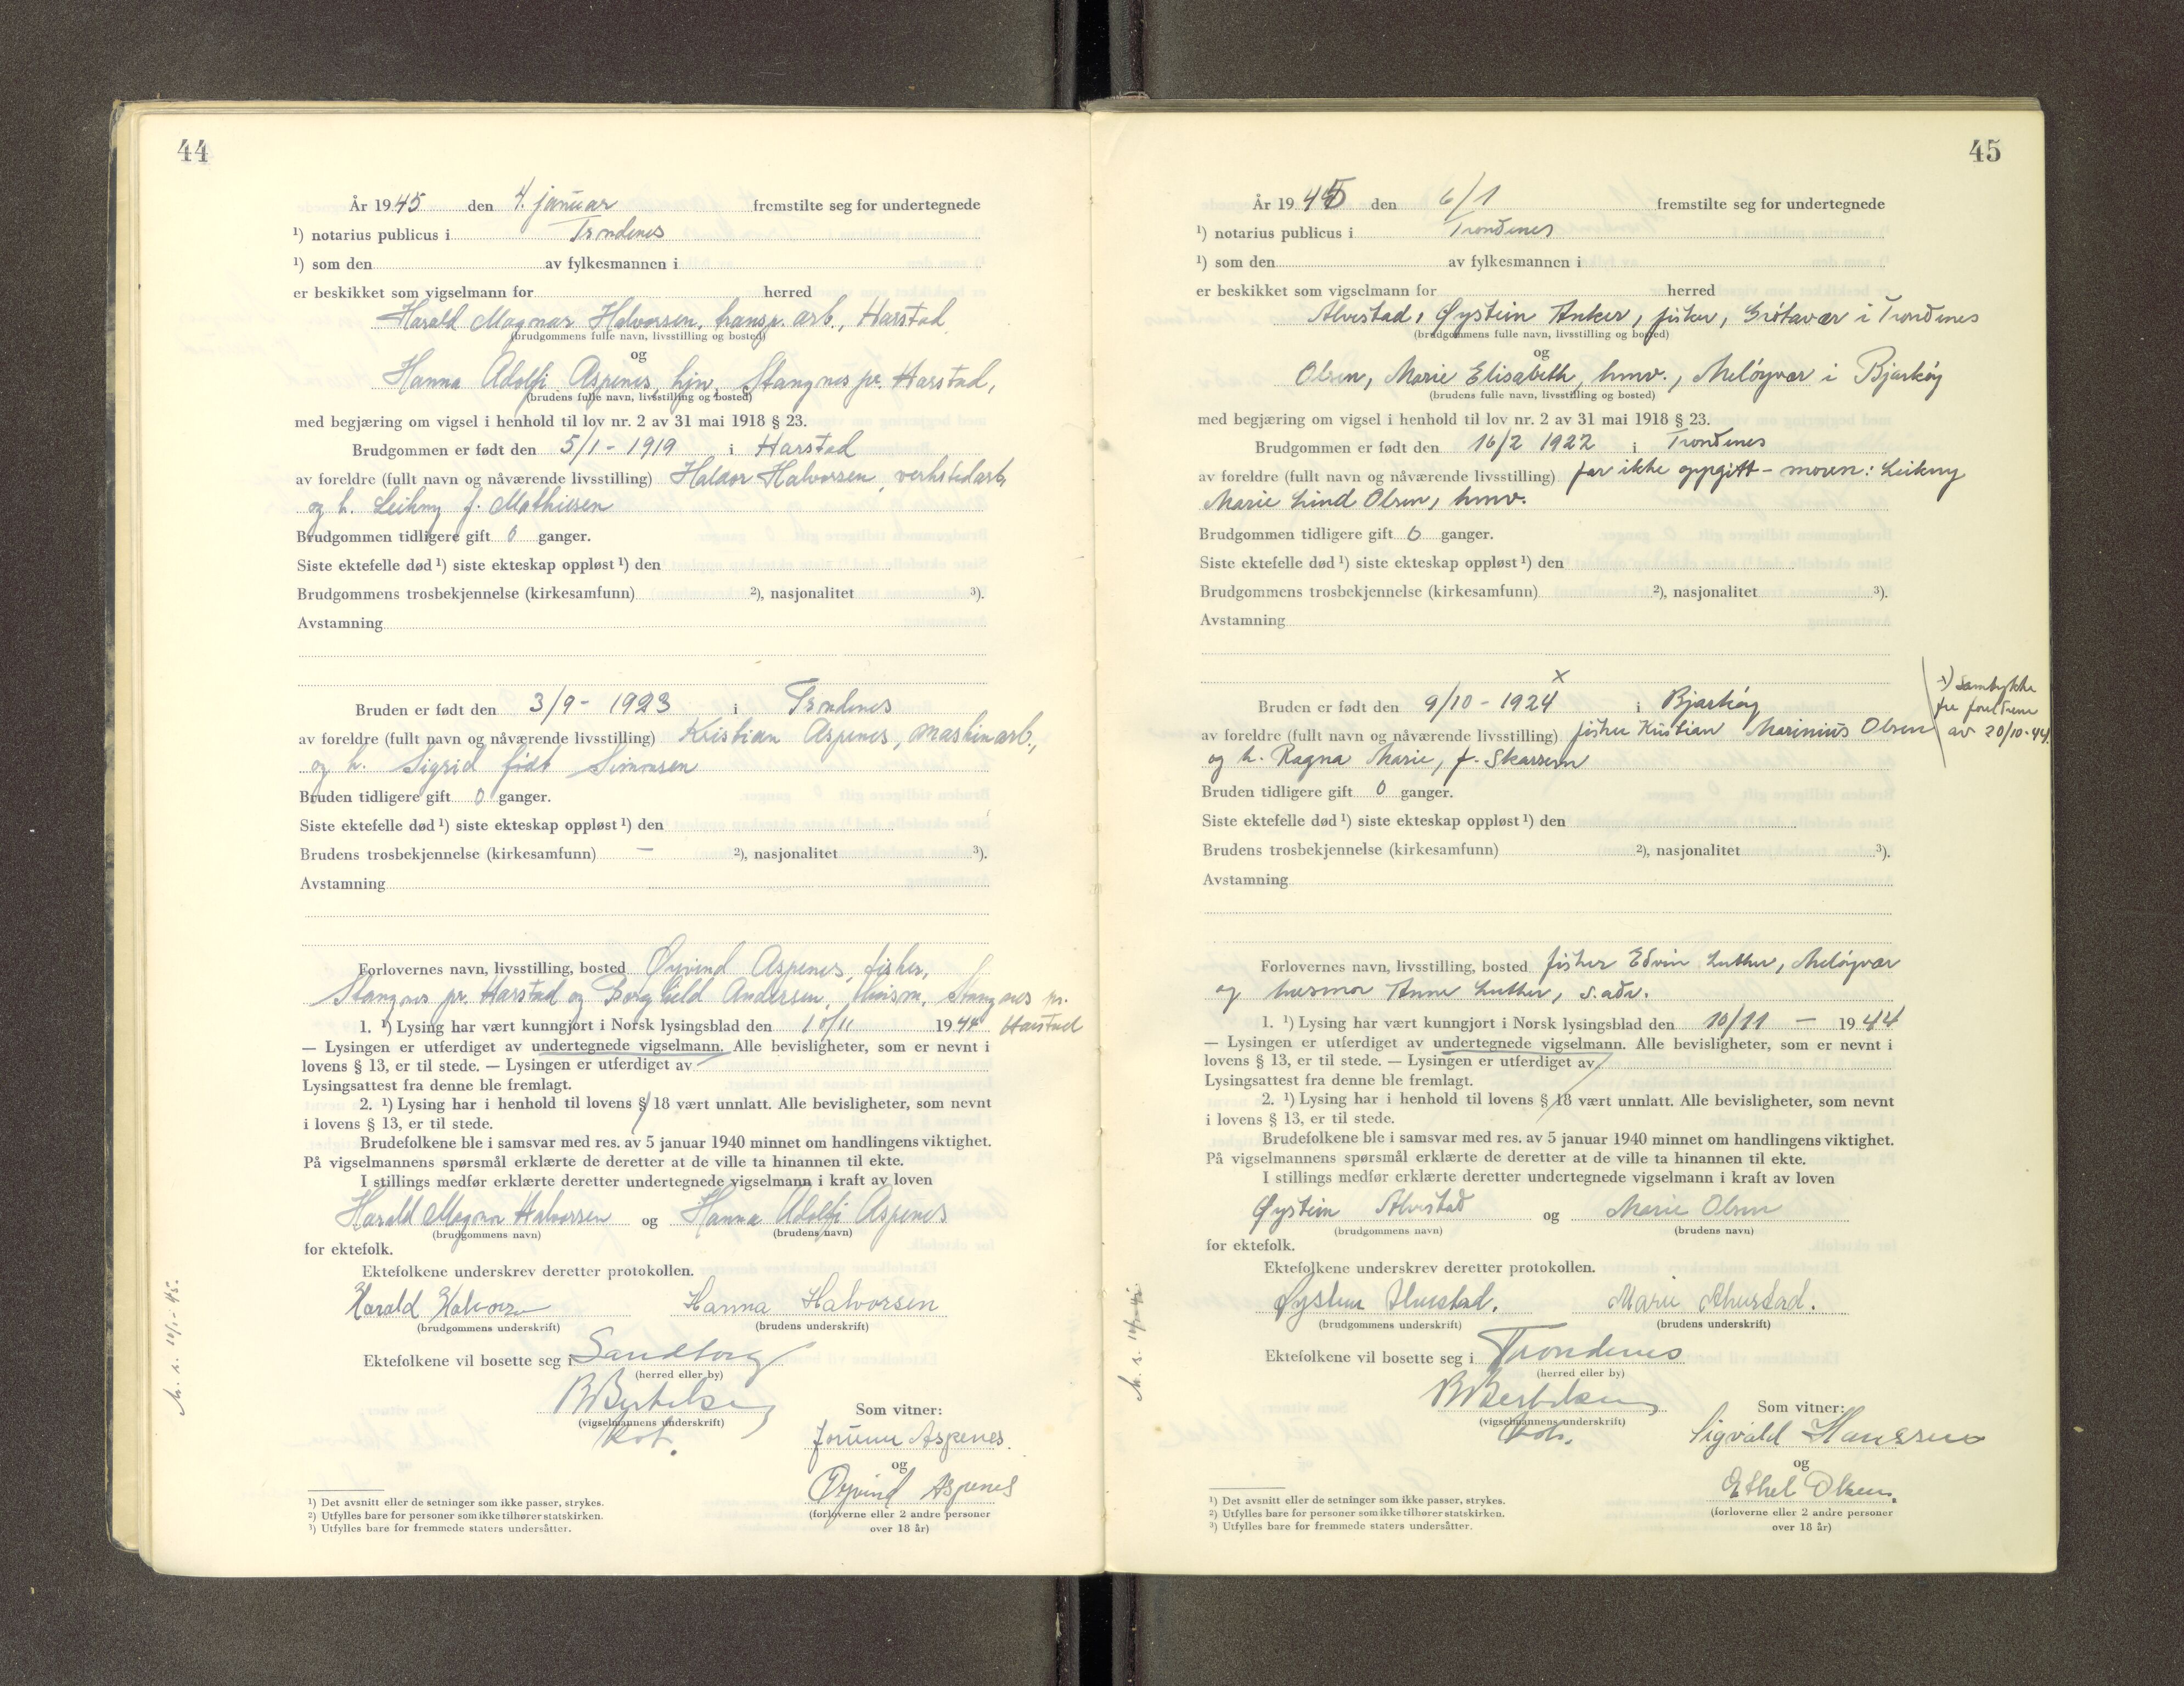 44
År 1945 den 4. januar fremstilte seg for undertegnede
¹) notarius publicus i Trondenes
¹) som den av fylkesmannen i
er beskikket som vigselmann for herred
Harald Magnar Halvorsen, transp. arb., Harstad
(brudgommens fulle navn, livsstilling og bosted)
og
Hanna Adolfi Aspenes, hjv. Stangnes pr. Harstad,
(brudens fulle navn, livsstilling og bosted)
med begjæring om vigsel i henhold til lov nr. 2 av 31 mai 1918 § 23.
Brudgommen er født den 5/1 - 1919 i Harstad
av foreldre (fullt navn og nåværende livsstilling) Haldor Halvorsen, verkstedarb,
og h. Leikny f. Mathiesen
Brudgommen tidligere gift 0 ganger.
Siste ektefelle død ¹) siste ekteskap oppløst ¹) den
Brudgommens trosbekjennelse (kirkesamfunn) ²), nasjonalitet ³).
Avstamning
Bruden er født den 3/9 - 1923 i Trondenes
av foreldre (fullt navn og nåværende livsstilling) Kristian Aspenes, maskinarb.,
og h. Sigrid født Simonsen
Bruden tidligere gift 0 ganger.
Siste ektefelle død ¹) siste ekteskap oppløst ¹) den
Brudens trosbekjennelse (kirkesamfunn) — ²), nasjonalitet ³).
Avstamning
Forlovernes navn, livsstilling, bosted Øyvind Aspenes, fisker,
Stangnes pr. Harstad og Borghild Andersen, Stangnes pr.
1. ¹) Lysing har vært kunngjort i Norsk lysingsblad den 10/11 1944 Harstad
— Lysingen er utferdiget av undertegnede vigselmann. Alle bevisligheter, som er nevnt i
lovens § 13, er til stede. — Lysingen er utferdiget av
Lysingsattest fra denne ble fremlagt.
2. ¹) Lysing har i henhold til lovens § 18 vært unnlatt. Alle bevisligheter, som nevnt
i lovens § 13, er til stede.
Brudefolkene ble i samsvar med res. av 5 januar 1940 minnet om handlingens viktighet.
På vigselmannens spørsmål erklærte de deretter at de ville ta hinannen til ekte.
I stillings medfør erklærte deretter undertegnede vigselmann i kraft av loven
Harald Magnar Halvorsen og Hanna Adolfi Aspenes
(brudgommens navn) (brudens navn)
for ektefolk.
Ektefolkene underskrev deretter protokollen.
Harald Halvorsen Hanna Halvorsen
(brudgommens underskrift) (brudens underskrift)
Ektefolkene vil bosette seg i Sandtorg
(herred eller by)
B Bertelsen
(vigselmannens underskrift)
Som vitner:
Aspenes
og
Øyvind Aspenes
(forloverne eller 2 andre personer
over 18 år)
¹) Det avsnitt eller de setninger som ikke passer, strykes.
²) Utfylles bare for personer som ikke tilhører statskirken.
³) Utfylles bare for fremmede staters undersåtter.
10/1-45.
45
År 1945 den 6/1 fremstilte seg for undertegnede
¹) notarius publicus i Trondenes
¹) som den av fylkesmannen i
er beskikket som vigselmann for herred
Alvestad, Øystein Anker, fisker, Grøtavær i Trondenes
(brudgommens fulle navn, livsstilling og bosted)
og
Olsen, Marie Elisabeth, hmv., Meløyvær i Bjarkøy
(brudens fulle navn, livsstilling og bosted)
med begjæring om vigsel i henhold til lov nr. 2 av 31 mai 1918 § 23.
Brudgommen er født den 16/2 1922 i Trondenes
av foreldre (fullt navn og nåværende livsstilling) far ikke oppgitt - moren: Leikny
Marie Lind Olsen, hmv.
Brudgommen tidligere gift 0 ganger.
Siste ektefelle død ¹) siste ekteskap oppløst ¹) den
Brudgommens trosbekjennelse (kirkesamfunn) ²), nasjonalitet ³).
Avstamning
x
Bruden er født den 9/10 - 1924 i Bjarkøy
av foreldre (fullt navn og nåværende livsstilling) fisker Kristian Marinius Olsen
og h. Ragna Marie, f. Skarsem
x) Samtykke
fra foreldrene
av 20/10-44.
Bruden tidligere gift 0 ganger.
Siste ektefelle død ¹) siste ekteskap oppløst ¹) den
Brudens trosbekjennelse (kirkesamfunn) ²), nasjonalitet ³).
Avstamning
Forlovernes navn, livsstilling, bosted fisker Edvin Luther, Meløyvær
og husmor Anne Luther, s. adr.
1. ¹) Lysing har vært kunngjort i Norsk lysingsblad den 10/11 — 1944
— Lysingen er utferdiget av undertegnede vigselmann. Alle bevisligheter, som er nevnt i
lovens § 13, er til stede. — Lysingen er utferdiget av
Lysingsattest fra denne ble fremlagt.
2. ¹) Lysing har i henhold til lovens § 18 vært unnlatt. Alle bevisligheter, som nevnt
i lovens § 13, er til stede.
Brudefolkene ble i samsvar med res. av 5 januar 1940 minnet om handlingens viktighet.
På vigselmannens spørsmål erklærte de deretter at de ville ta hinannen til ekte.
I stillings medfør erklærte deretter undertegnede vigselmann i kraft av loven
Øystein Alvestad og Marie Olsen
(brudgommens navn) (brudens navn)
for ektefolk.
Ektefolkene underskrev deretter protokollen.
Øystein Alvestad. Marie Alvestad.
(brudgommens underskrift) (brudens underskrift)
Ektefolkene vil bosette seg i Trondenes
(herred eller by)
B Bertelsen
(vigselmannens underskrift)
Som vitner:
Sigvald Hanssen
og
Ethel Olsen.
(forloverne eller 2 andre personer
over 18 år)
¹) Det avsnitt eller de setninger som ikke passer, strykes.
²) Utfylles bare for personer som ikke tilhører statskirken.
³) Utfylles bare for fremmede staters undersåtter.